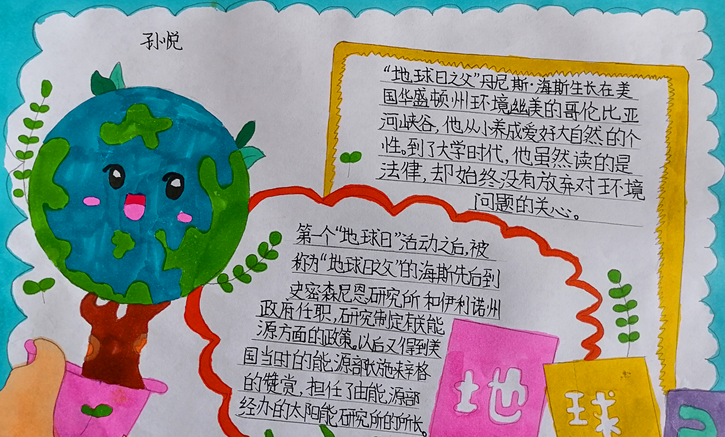 孙悦
“地球日之父”丹尼斯·海斯生长在美
国华盛顿州环境幽美的哥伦比亚
河峡谷,他从小养成爱好大自然的个
性。到了大学时代,他虽然读的是
法律,却始终没有放弃对环境
问题的关心。
第一个“地球日”活动之后,被
称为“地球日之父”的海斯先后到
史密森尼恩研究所和伊利诺州
政府任职,研究制定有关能
源方面的政策。以后又得到美
国当时的能源部长施来辛格
的赞赏,担任了由能源部
经办的太阳能研究所的所长。
地
球